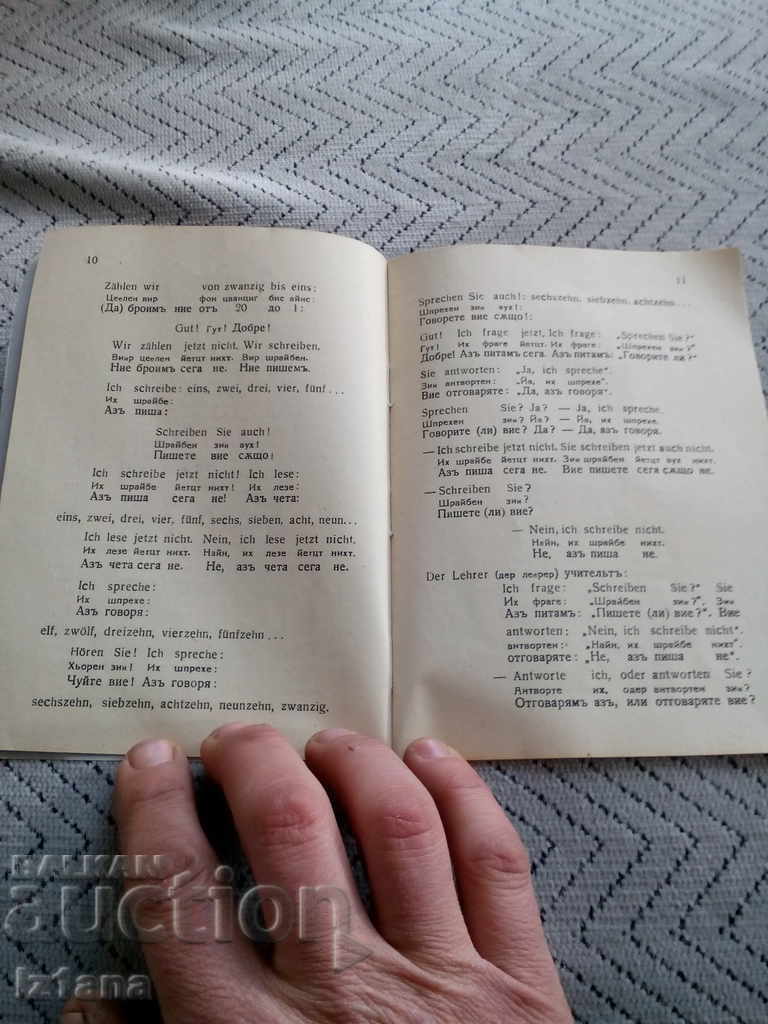 10
Zählen wir von zwanzig bis eins:
Цеелен вир фон цванциг бис айнс:
(Да) броимъ ние отъ 20 до 1:
Gut! Гут! Добре!
Wir zählen jetzt nicht. Wir schreiben.
Виир цеелен йетцт нихт. Вир шрайбен.
Ние броимъ сега не. Ние пишемъ.
Ich schreibe: eins, zwei, drei, vier, fünf...
Их шрайбе:
Азъ пиша:
Schreiben Sie auch!
Шрайбен зии аух!
Пишете вие сѫщо!
Ich schreibe jetzt nicht! Ich lese:
Их шрайбе йетцт нихт! Их лезе:
Азъ пиша сега не! Азъ чета:
eins, zwei, drei, vier, fünf, sechs, sieben, acht, neun...
Ich lese jetzt nicht. Nein, ich lese jetzt nicht.
Их лезе йетцт нихт. Найн, их лезе йетцт нихт.
Азъ чета сега не. Не, азъ чета сега не.
Ich spreche:
Их шпрехе:
Азъ говоря:
elf, zwölf, dreizehn, vierzehn, fünfzehn...
Hören Sie! Ich spreche:
Хьорен зии! Их шпрехе:
Чуйте вие! Азъ говоря:
sechszehn, siebzehn, achtzehn, neunzehn, zwanzig.
11
Sprechen Sie auch!: sechszehn, siebzehn, achtzehn...
Шпрехен зии аух!:
Говорете вие сѫщо!:
Gut! Ich frage jetzt, Ich frage: „Sprechen Sie?"
Гут! Их фраге йетцт. Их фраге: „Шпрехен зии?"
Добре! Азъ питамъ сега. Азъ питамъ: „Говорите ли?"
Sie antworten: „Ja, ich spreche".
Зии антвортен: „Йа, их шпрехе".
Вие отговаряте: „Да, азъ говоря".
Sprechen Sie? Ja? — Ja, ich spreche.
Шпрехен зии? Йа? — Йа, их шпрехе.
Говорите (ли) вие? Да? — Да, азъ говоря.
— Ich schreibe jetzt nicht. Sie schreiben jetzt auch nicht.
Их шрайбе йетцт нихт. Зии шрайбен йетцт аух нихт.
Азъ пиша сега не. Вие пишете сега сѫщо не.
— Schreiben Sie?
Шрайбен зии?
Пишете (ли) вие?
— Nein, ich schreibe nicht.
Найн, их шрайбе нихт.
Не, азъ пиша не.
Der Lehrer (дер леерер) учительтъ:
Ich frage: „Schreiben Sie?" Sie
Их фраге: „Шрайбен зии?". Зии
Азъ питамъ: „Пишете (ли) вие?". Вие
antworten: „Nein, ich schreibe nicht".
антвортен: „Найн, их шрайбе нихт".
отговаряте: „Не, азъ пиша не".
— Antworte ich, oder antworten Sie?
Антворте их, одер антвортен зии?
Отговарямъ азъ, или отговаряте вие?
BALKAN
auction
Iztana